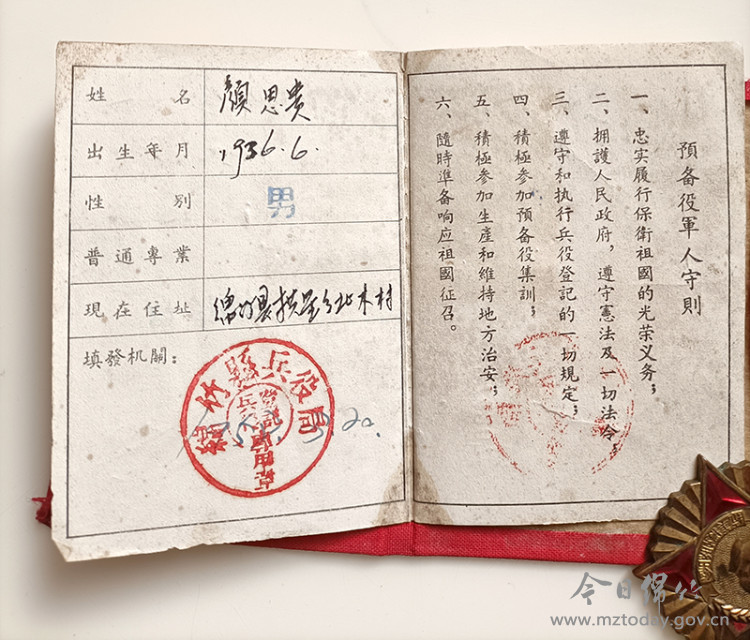 姓名 顏思貴
出生年月 1936.6.
性別 男
普通專業
現在住址 綿竹县拱星乡北木村
填發机關：
綿竹縣兵役局
預备役軍人守則
一、忠实履行保衛祖國的光荣义务；
二、拥護人民政府，遵守憲法及一切法令；
三、遵守和执行兵役登記的一切規定；
四、積極参加預备役集訓；
五、積極参加生產和維持地方治安；
六、隨時準备响应祖國征召。
今日绵竹
www.mztoday.gov.cn